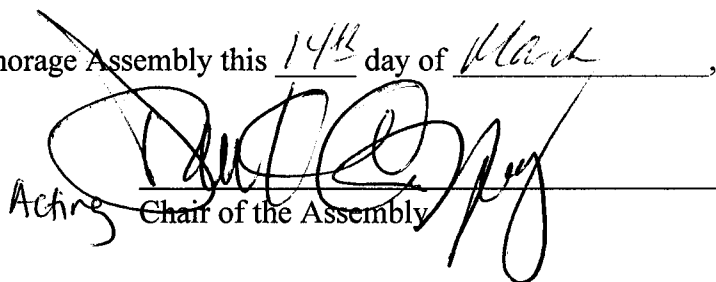 norage Assembly this 14th day of March,
Acting Chair of the Assembly